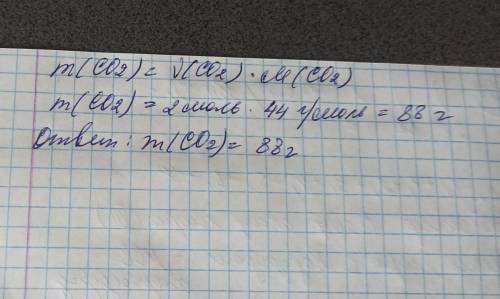 m(CO2) = ν(CO2) · M(CO2)
m(CO2) = 2 моль · 44 г/моль = 88 г
Ответ: m(CO2) = 88г